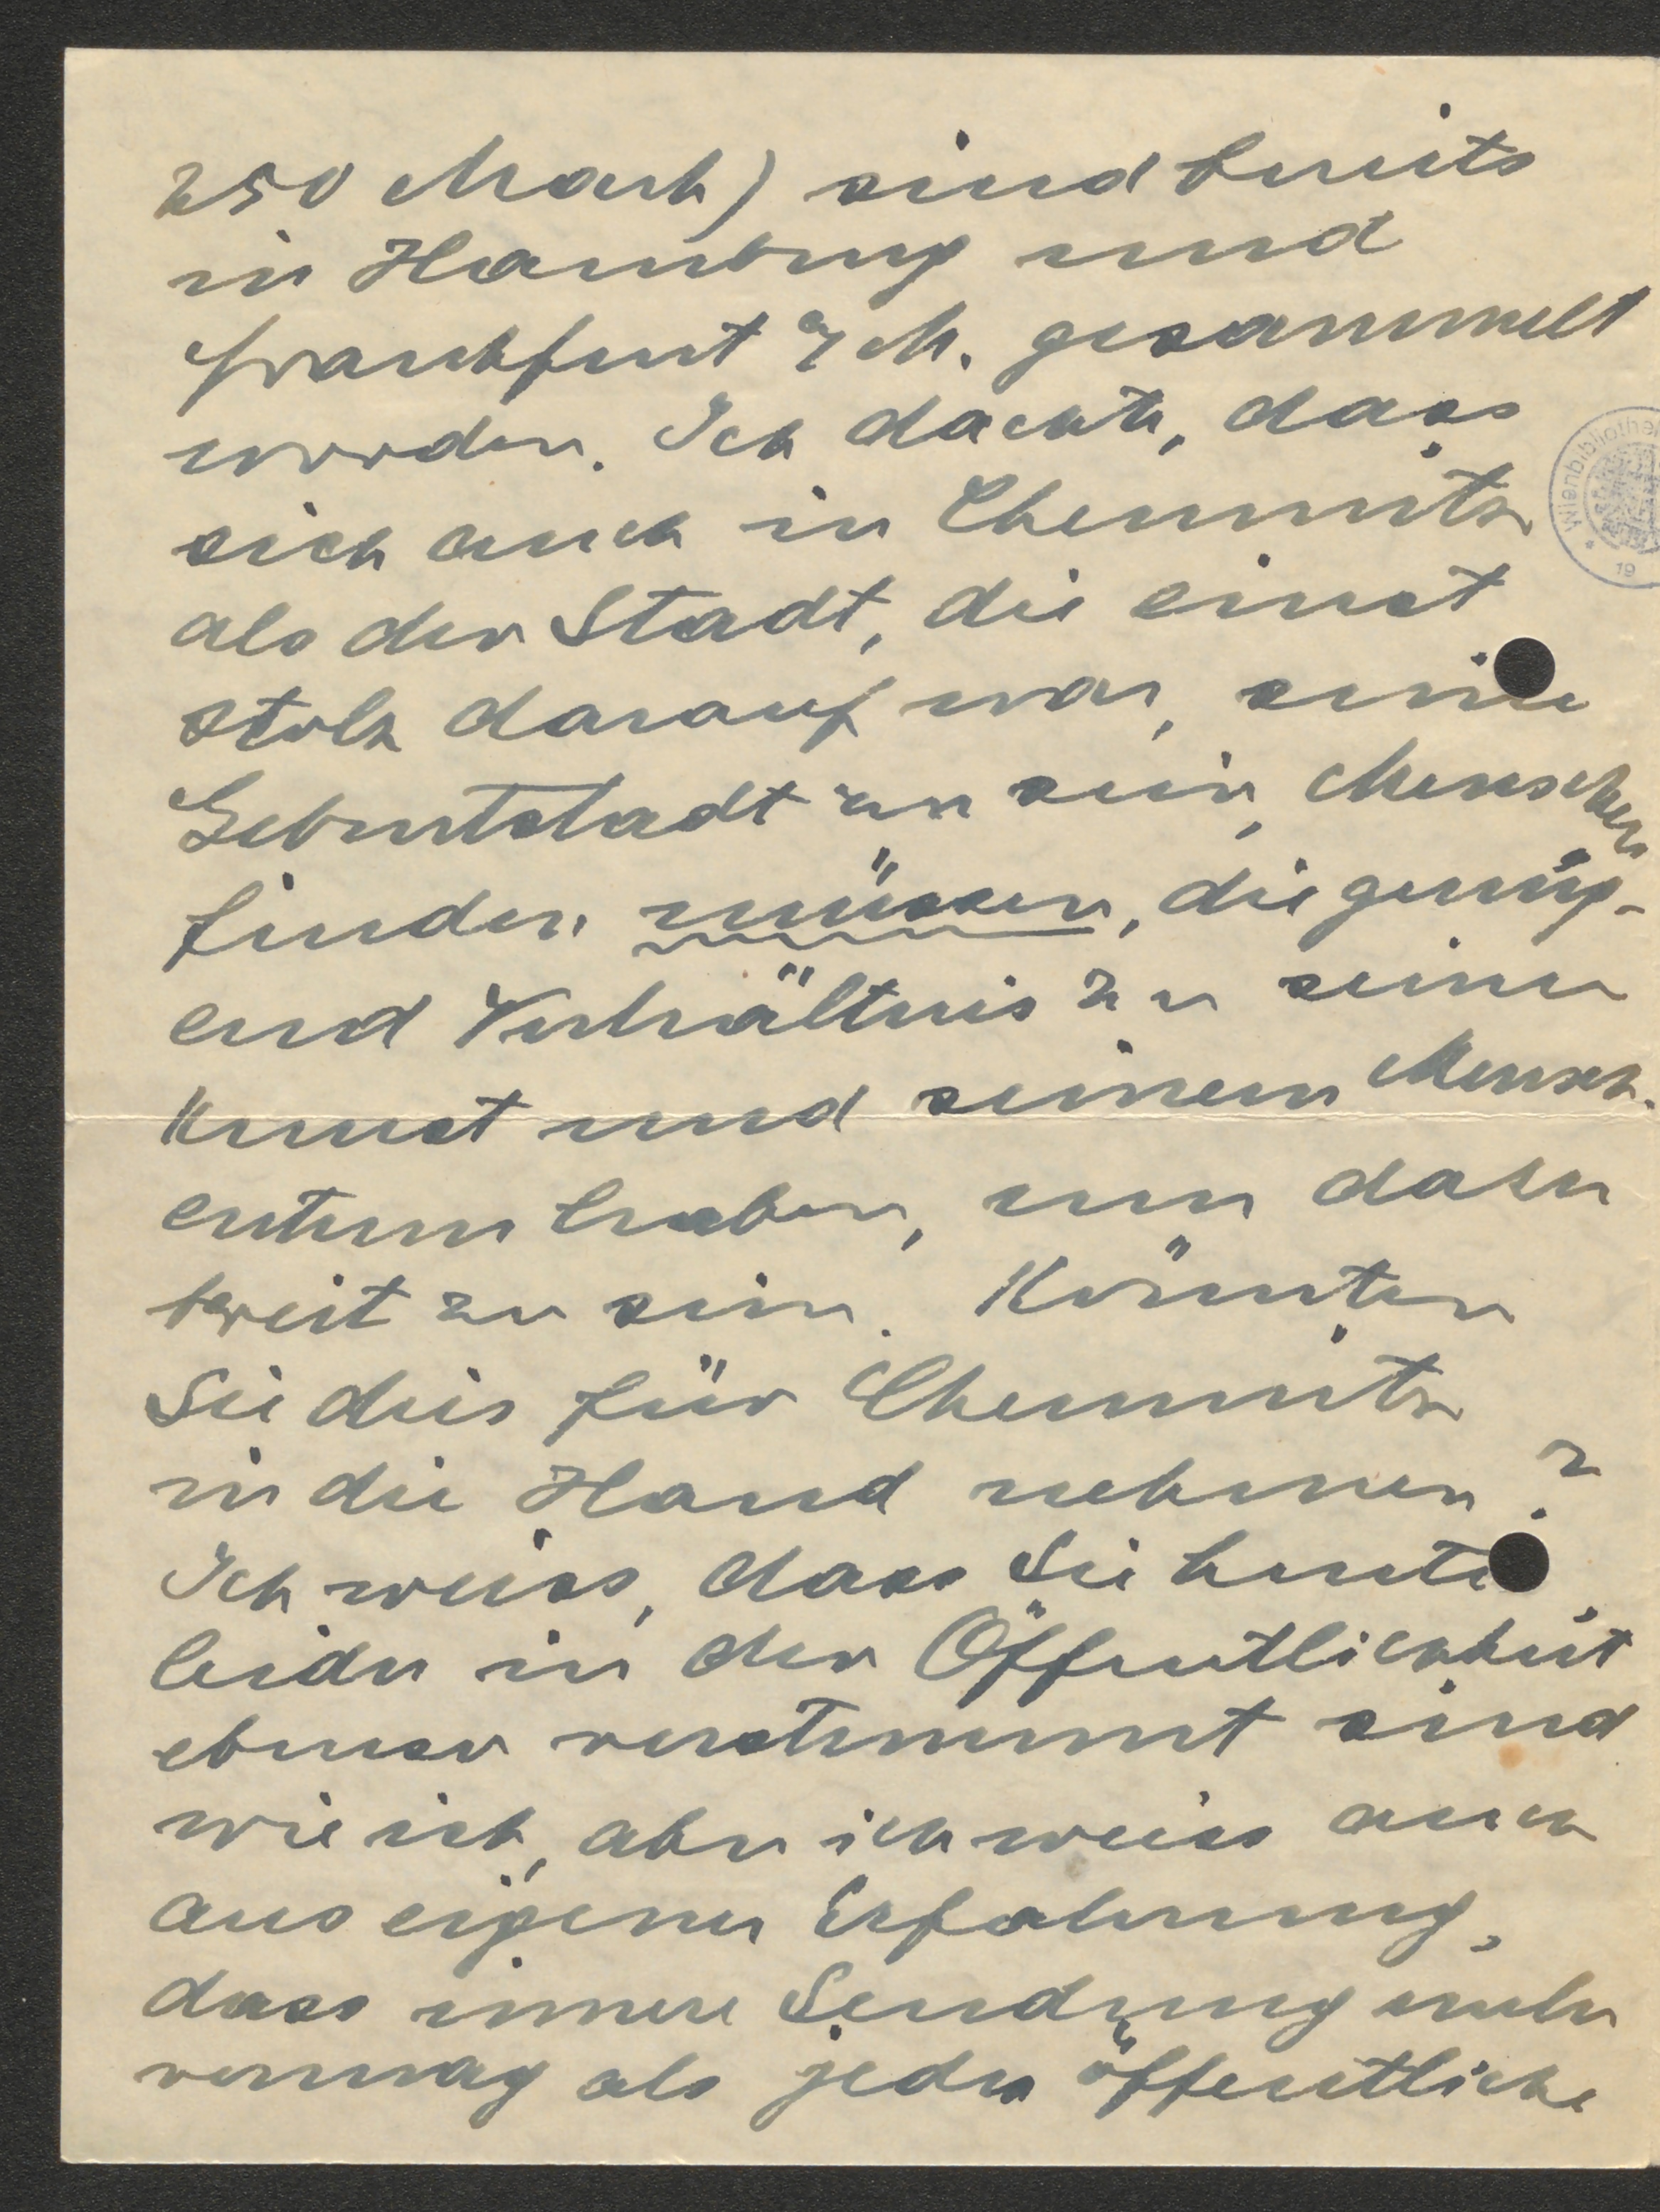 250 Mark) sind bereits
in Hamburg und
Frankfurt a/M. gesammelt
worden. Ich dachte, dass
sich auch in Chemnitz
als der Stadt, die einst
stolz darauf war, seine
Geburtstadt zu sein, Menschen
finden müssen, die genüg-
end Verhältnis zu seiner
Kunst und seinem Mensch-
entum haben, um dazu
bereit zu sein. Könnten
Sie dies für Chemnitz
in die Hand nehmen?
Ich weiss, dass Sie heute
leider in der Öffentlichkeit
ebenso verstummt sind
wie ich, aber ich weiss auch
aus eigener Erfahrung,
dass innere Sendung mehr
vermag als jeder öffentliche
Wienbibliothe
19